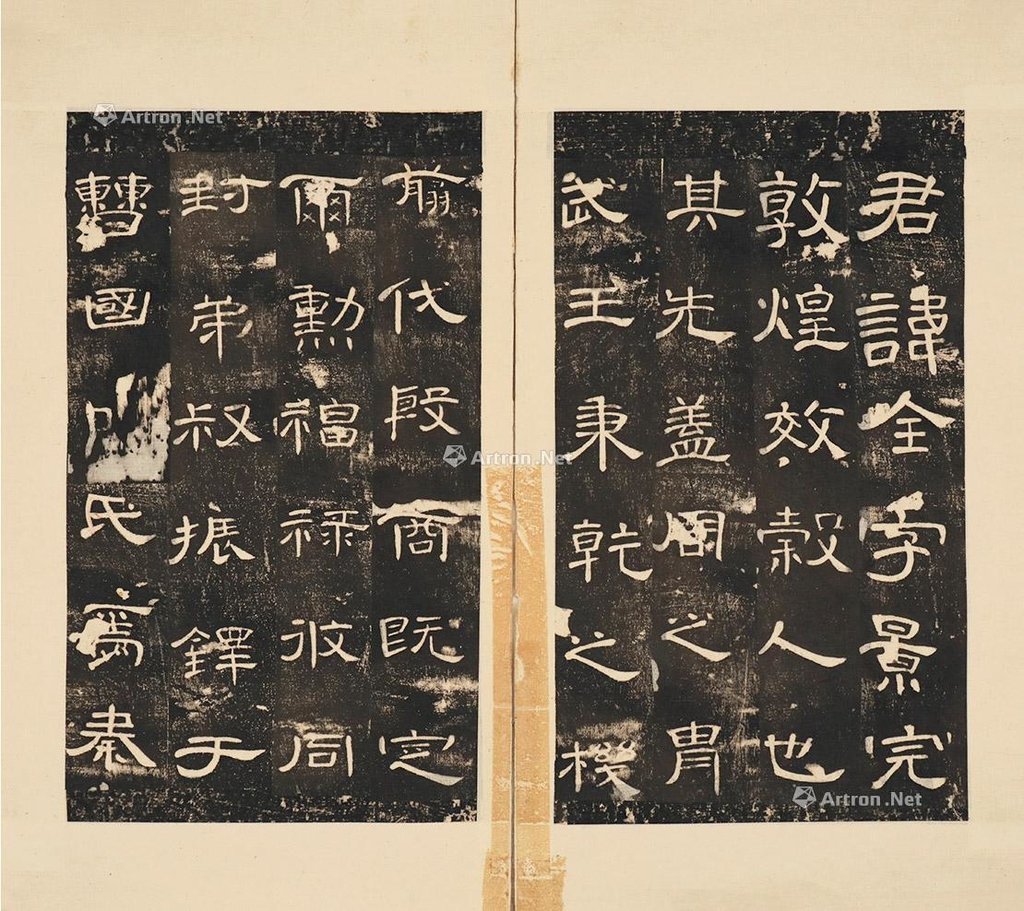 君諱全字景完
敦煌效穀人也
其先盖周之胄
武王秉乾之機
翦伐殷商既定
爾勳福祿攸同
封弟叔振鐸于
曹國氏焉秦
Artron.Net
Artron.Net
Artron.Net